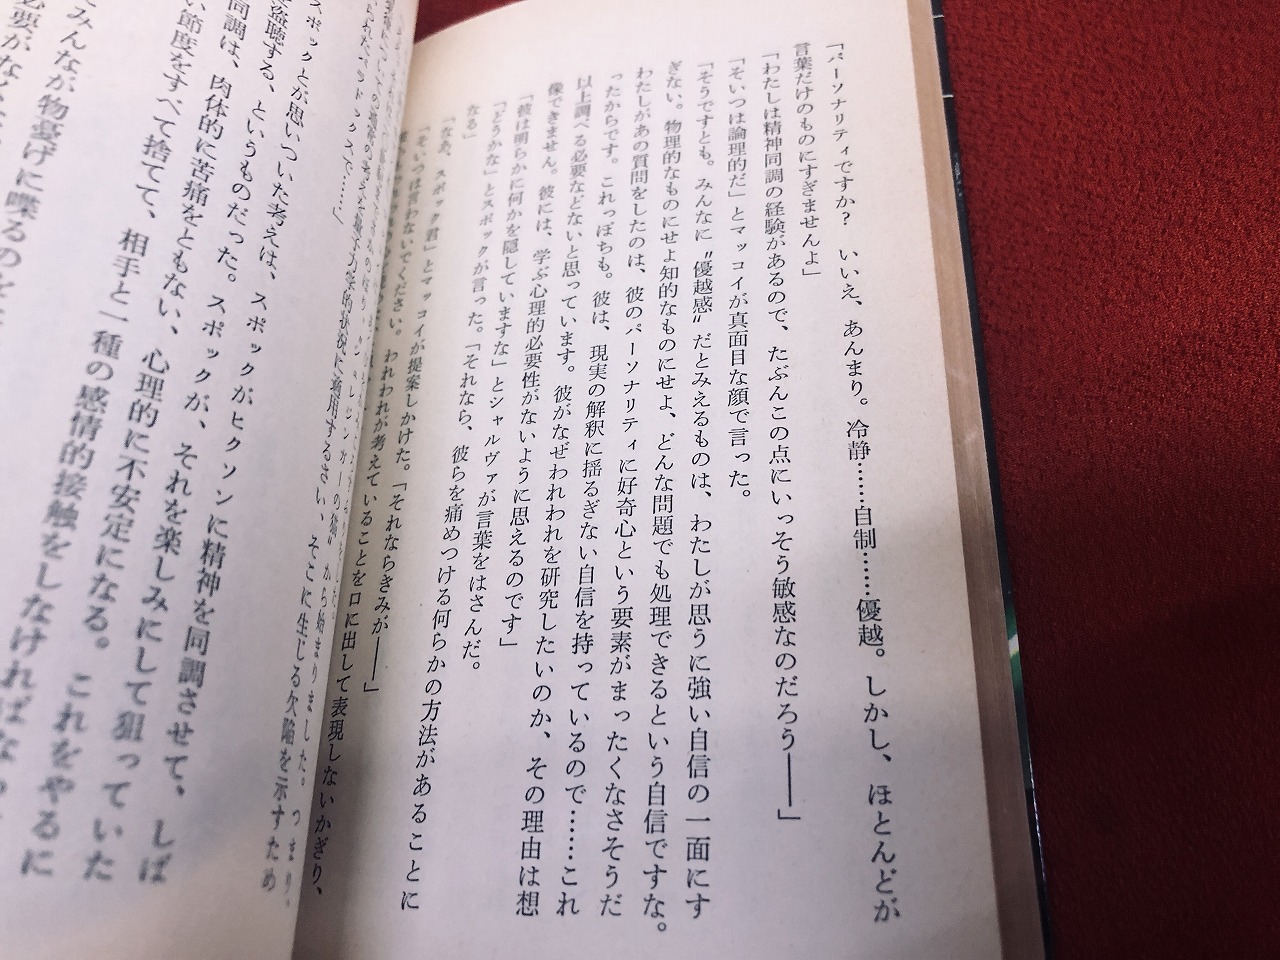 「パーソナリティですか？　いいえ、あんまり。冷静……自制……優越。しかし、ほとんどが
言葉だけのものにすぎませんよ」
「わたしは精神同調の経験があるので、たぶんこの点にいっそう敏感なのだろう――」
「そいつは論理的だ」とマッコイが真面目な顔で言った。
「そうですとも。みんなに〝優越感〟だとみえるものは、わたしが思うに強い自信の一面にす
ぎない。物理的なものにせよ知的なものにせよ、どんな問題でも処理できるという自信ですな。
わたしがあの質問をしたのは、彼のパーソナリティに好奇心という要素がまったくなさそうだ
ったからです。これっぽちも。彼は、現実の解釈に揺るぎない自信を持っているので……これ
以上調べる必要などないと思っています。彼がなぜわれわれを研究したいのか、その理由は想
像できません。彼には、学ぶ心理的必要性がないように思えるのです」
「彼は明らかに何かを隠していますな」とシャルヴァが言葉をはさんだ。
「どうかな」とスポックが言った。「それなら、彼らを痛めつける何らかの方法があることに
なる」
「なあ、スポック君」とマッコイが提案しかけた。「それならきみが――」
「そいつは言わないでください。われわれが考えていることを口に出して表現しないかぎり、
から始まりました。つまり、
量子力学的状況に適用するさい、そこに生じる欠陥を示すため
パラドックスで……」
スポックとが思いついた考えは、スポックがヒクソンに精神を同調させて、しば
盗聴する、というものだった。スポックが、それを楽しみにして狙っていた
同調は、肉体的に苦痛をともない、心理的に不安定になる。これをやるに
い節度をすべて捨てて、相手と一種の感情的接触をしなければな
みんなが物蔭げに喋るのを